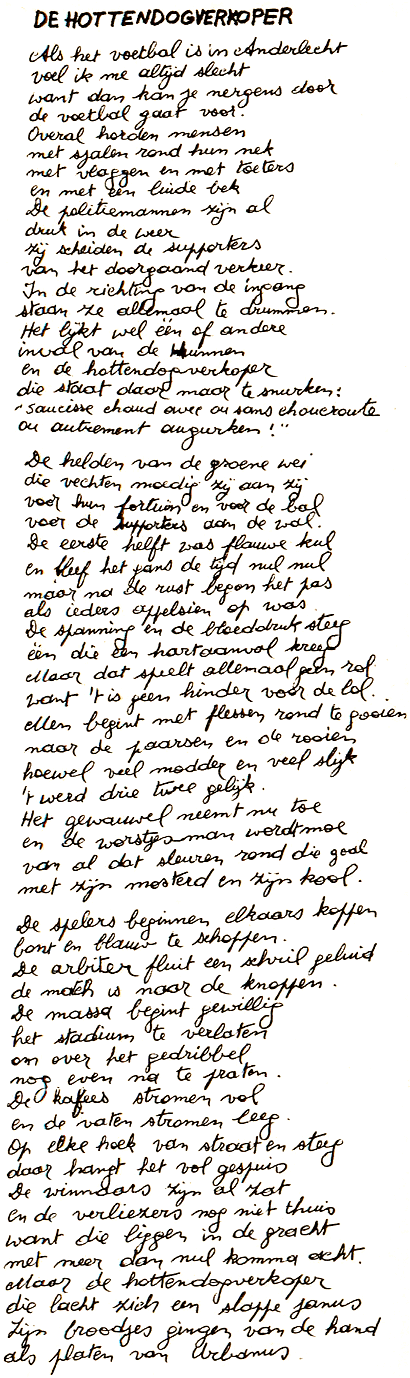 DE HOTTENDOGVERKOPER
Als het voetbal is in Anderlecht
voel ik me altijd slecht
want dan kan je nergens door
de voetbal gaat voor.
Overal horden mensen
met sjalen rond hun nek
met vlaggen en met toeters
en met een luide bek
De politiemannen zijn al
druk in de weer
zij scheiden de supporters
van het doorgaand verkeer.
In de richting van de ingang
staan ze allemaal te drummen.
Het lijkt wel één of andere
inval van de Hunnen
en de hottendogverkoper
die staat daar maar te snurken:
"saucisse chaud avec ou sans choucroute
ou autrement augurken!"
De helden van de groene wei
die vechten moedig zij aan zij
voor hun fortuin en voor de bal
voor de supporters aan de wal.
De eerste helft was flauwe kul
en bleef het gans de tijd nul nul
maar na de rust begon het pas
als ieders appelsien op was
De spanning en de bloeddruk steeg
één die een hartaanval kreeg
Maar dat speelt allemaal geen rol
want 't is geen hinder voor de lol.
Men begint met flessen rond te gooien
naar de paarsen en de rooien
hoewel veel modder en veel slijk
't werd drie twee gelijk.
Het gewauwel neemt nu toe
en de worstjesman wordt moe
van al dat sleuren rond die goal
met zijn mosterd en zijn kool.
De spelers beginnen elkaars koppen
bont en blauw te schoppen.
De arbiter fluit een schril geluid
de match is naar de knoppen.
De massa begint gewillig
het stadium te verlaten
om over het gedribbel
nog even na te praten.
De kafees stromen vol
en de vaten stromen leeg.
Op elke hoek van straat en steeg
daar hangt het vol gespuis
De winnaars zijn al zat
en de verliezers nog niet thuis
want die liggen in de gracht
met meer dan nul komma acht.
Maar de hottendogverkoper
die lacht zich een slappe janus
Zijn broodjes gingen van de hand
als platen van Urbanus.